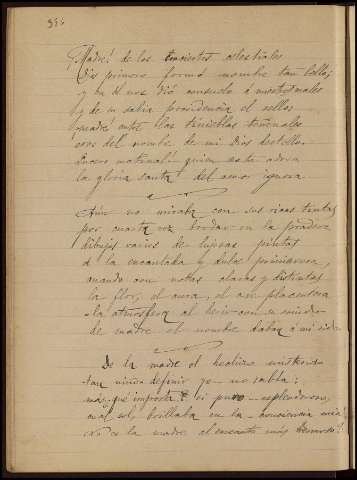 ¡Madre! de los concientos celestiales
Dios primero formó nombre tan bello;
y en él nos dió consuelo á nuestros males
y de su sabia providencia el sello
madre entre las tinieblas
eres del nombre de mi Dios destello
Lucero matinal! quien no te adora
la gloria santa del amor ignora.
Aún no miraba con sus ricas tintas
por cuarta vez bordar en la pradera
dibujos varios de lujosas pintas
á la encantada y dulce primavera,
cuando con notas claras y distintas
la flor, el aura, el ave placentera
la atmósfera al herir con su
de madre el nombre daban á mi
De la madre el hechizo misterioso
tan niña definir yo no sabía;
mas, qué importa? si puro esplendoroso,
cual sol, brillaba en la conciencia mía
No es la madre el encanto más hermoso?